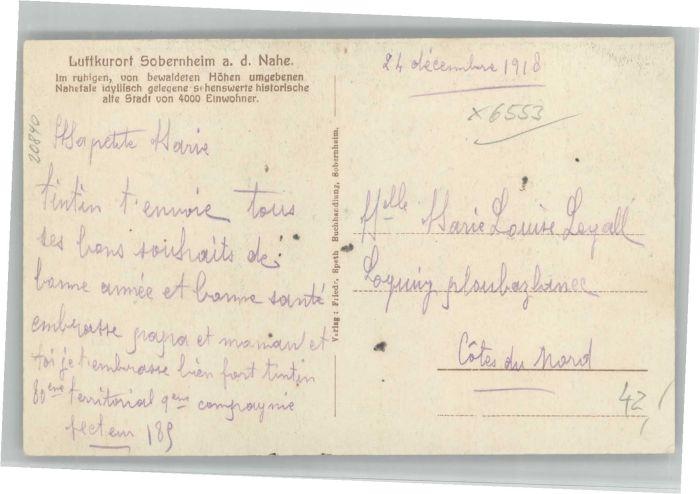 Luftkurort Sobernheim a. d. Nahe.
Im ruhigen, von bewaldeten Höhen umgebenen
Nahetale idyllisch gelegene sehenswerte historische
alte Stadt von 4000 Einwohner.
20840
Ma petite Marie
tintin t'envoie tous
ses bons souhaits de
bonne année et bonne santé
embrasse papa et maman et
toi je t'embrasse bien fort tintin
80ème territorial 9ème compagnie
secteur 189
Verlag: Friedr. Speth Buchhandlung, Sobernheim.
24 décembre 1918
x6553
Melle Marie Louise Legall
Loguivy ploubazlanec
Côtes du Nord
42